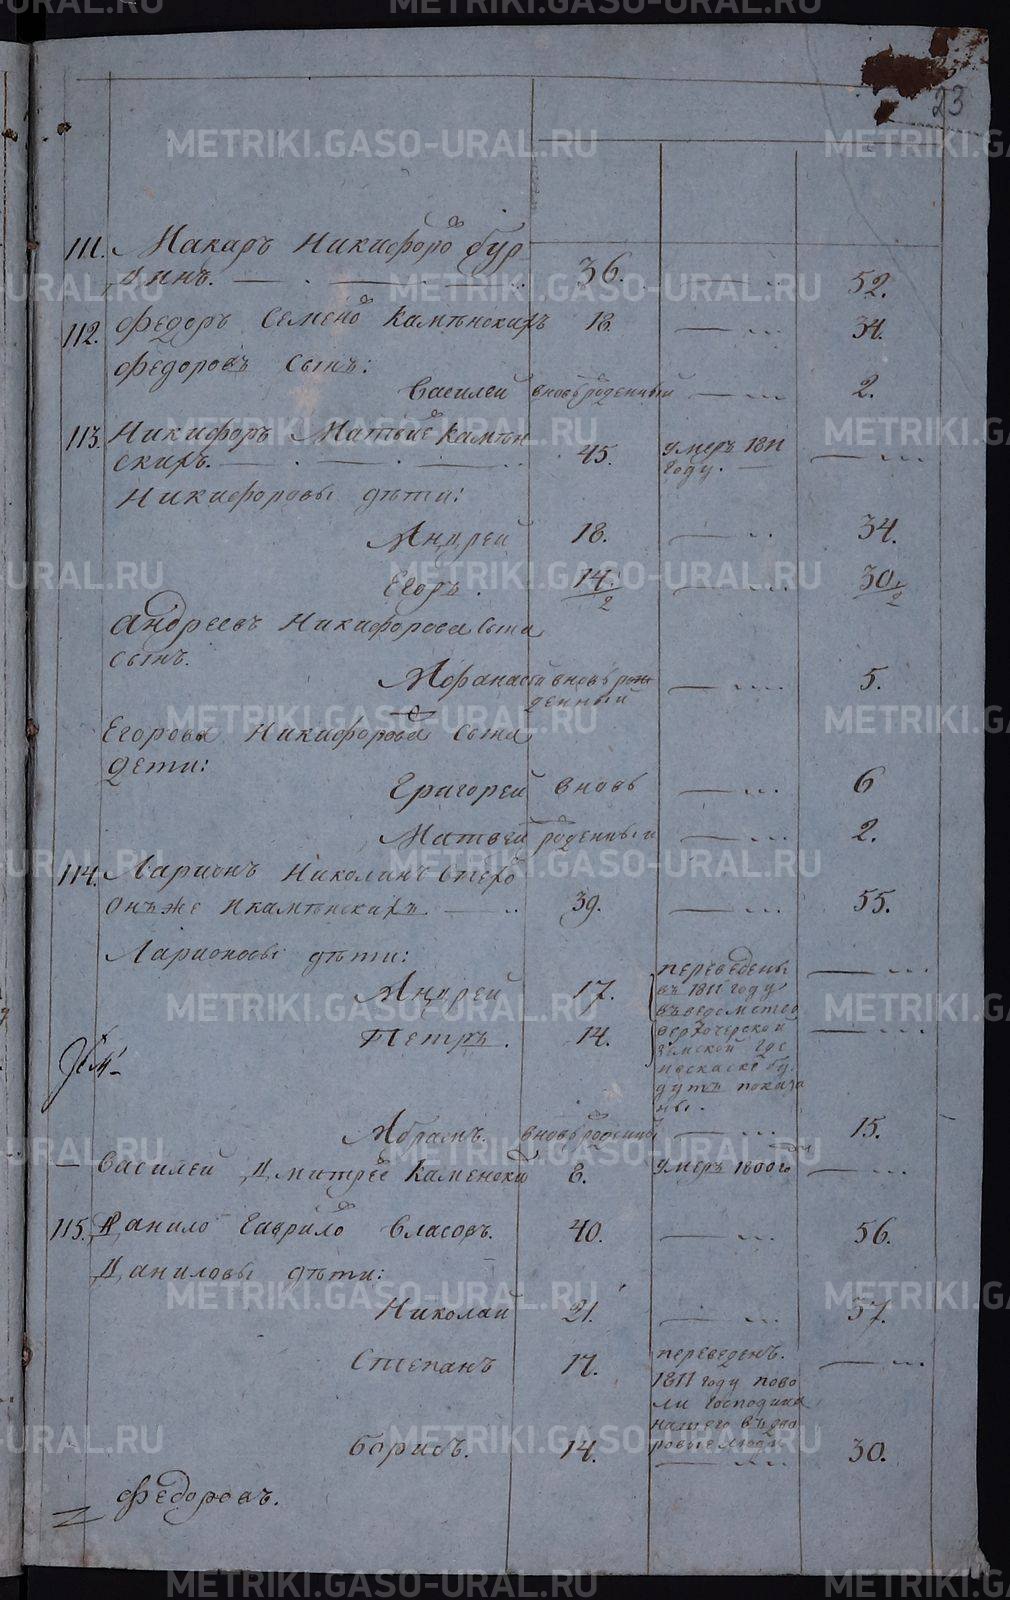 23
111. Макаръ Никифоровъ бур
динъ. 36. 52.
112. Федоръ Семеновъ Каменскихъ 18. 34.
Федоровъ сынъ:
Василей вновьроденный 2.
113. Никифоръ Матвеевъ Камен
скихъ. 45. умеръ 1811
году.
Никифоровы дѣти:
Андрей 18. 34.
Егоръ. 14/2 30/2
Андреевъ Никифорова сына
сынъ.
Афанасей вновь рож
денный 5.
Егоровы Никифорова сына
дети:
Григорей вновь 6
Матвей роденныи 2.
114. Ларионъ Николинъ
онъже Икаменскихъ 39. 55.
Ларионовы дѣти:
Андрей 17. переведены
въ 1811 году
Петръ. 14.
земской где
будутъ показа
ны.
Абрамъ. вновьроденный 15.
Василей Дмитреевъ Каменской 8. умеръ 1800го
115. Данило Гаврило Власовъ. 40. 56.
Даниловы дѣти:
Николай 21. 37.
Степанъ 17. переведенъ.
1811 году пово
ли господина
нашего въ дво
ровые люди
Борисъ. 14. 30.
Федоровъ.
METRIKI.GASO-URAL.RU